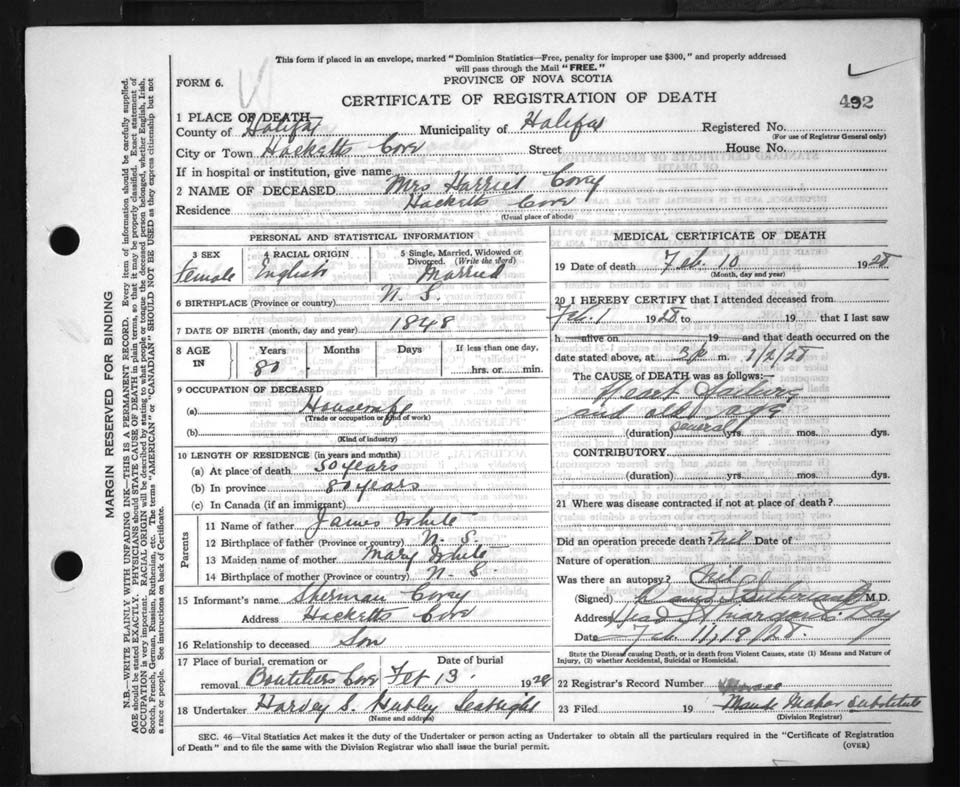 This form if placed in an envelope, marked "Dominion Statistics—Free, penalty for improper use $300," and properly addressed
will pass through the Mail "FREE."
FORM 6.
PROVINCE OF NOVA SCOTIA
CERTIFICATE OF REGISTRATION OF DEATH
492
1 PLACE OF DEATH
County of Halifax Municipality of Halifax Registered No.
(For use of Registrar General only)
City or Town Hacketts Cove Street House No.
If in hospital or institution, give name
2 NAME OF DECEASED Mrs Harriet Covey
Residence Hacketts Cove
(Usual place of abode)
PERSONAL AND STATISTICAL INFORMATION
3 SEX 4 RACIAL ORIGIN 5 Single, Married, Widowed or
Divorced. (Write the word)
Female English Married
6 BIRTHPLACE (Province or country) N. S.
7 DATE OF BIRTH (month, day and year) 1848
8 AGE IN Years Months Days If less than one day,
80 hrs. or min.
9 OCCUPATION OF DECEASED
(a) Housewife
(Trade or occupation or kind of work)
(b)
(Kind of industry)
10 LENGTH OF RESIDENCE (in years and months)
(a) At place of death 50 years
(b) In province 80 years
(c) In Canada (if an immigrant)
Parents
11 Name of father James White
12 Birthplace of father (Province or country) N. S.
13 Maiden name of mother Mary White
14 Birthplace of mother (Province or country) N. S.
15 Informant's name Sherman Covey
Address Hacketts Cove
16 Relationship to deceased Son
17 Place of burial, cremation or Date of burial
removal Boutiliers Cove Feb 13 1928
18 Undertaker Harvey S. Hubley Seabright
(Name and address)
MEDICAL CERTIFICATE OF DEATH
19 Date of death Feb. 10 1928
(Month, day and year)
20 I HEREBY CERTIFY that I attended deceased from
Feb. 1 1928 to 19 that I last saw
h alive on 19 and that death occurred on the
date stated above, at m.
The CAUSE of DEATH was as follows:—
Heart
and old age
(duration) several yrs. mos. dys.
CONTRIBUTORY
(duration) yrs. mos. dys.
21 Where was disease contracted if not at place of death?
Did an operation precede death? Nil Date of
Nature of operation
Was there an autopsy? Nil
(Signed) M.D.
Address Head St Margarets Bay
Date Feb. 11, 19/28.
State the Disease causing Death, or in death from Violent Causes, state (1) Means and Nature of
Injury, (2) whether Accidental, Suicidal or Homicidal.
22 Registrar's Record Number
23 Filed 19 Maude substitute
(Division Registrar)
SEC. 46—Vital Statistics Act makes it the duty of the Undertaker or person acting as Undertaker to obtain all the particulars required in the "Certificate of Registration
of Death" and to file the same with the Division Registrar who shall issue the burial permit.
(OVER)
MARGIN RESERVED FOR BINDING
N.B.—WRITE PLAINLY WITH UNFADING INK—THIS IS A PERMANENT RECORD. Every item of information should be carefully supplied.
AGE should be stated EXACTLY. PHYSICIANS should STATE CAUSE OF DEATH in plain terms, so that it may be properly classified. Exact statement of
OCCUPATION is very important. RACIAL ORIGIN will be described by stating to what people or tongue the deceased person belonged, whether English, Irish,
Scotch, French, German, Russian, Ruthenian, etc. The terms "AMERICAN" or "CANADIAN" SHOULD NOT BE USED as they express citizenship but not
a race or people. See instructions on back of Certificate.